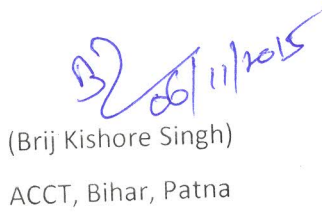 06/11/2015
(Brij Kishore Singh)
ACCT, Bihar, Patna